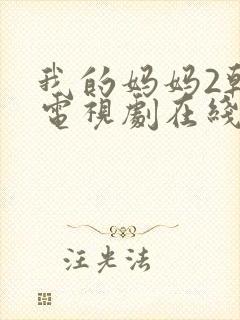 我的妈妈2
電視劇在綫
汪光法